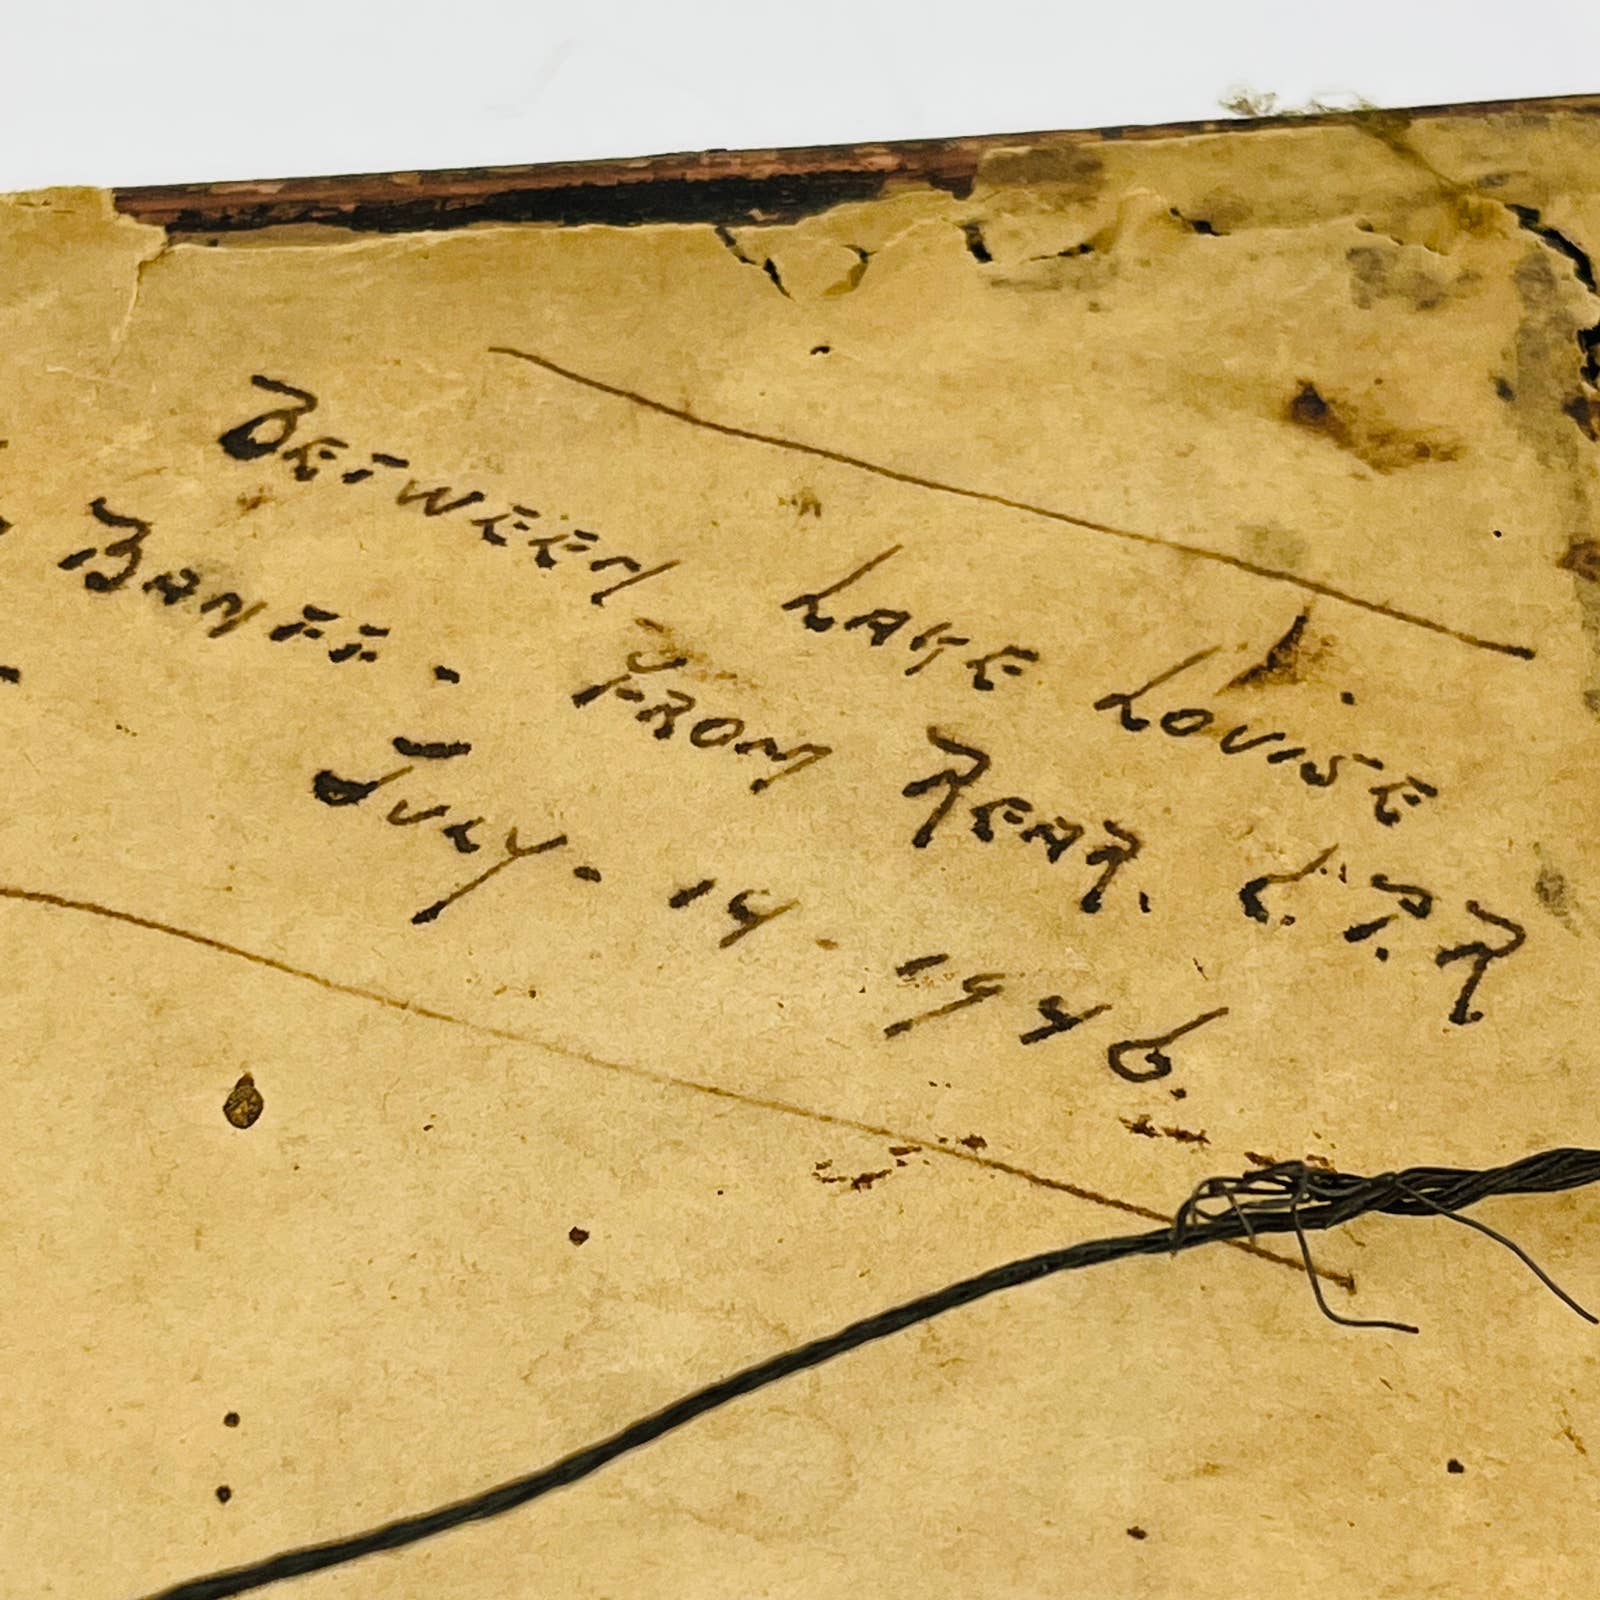 BETWEEN LAKE LOUISE
BANFF. FROM REAR. C.P.R
JULY- 14- 1946.